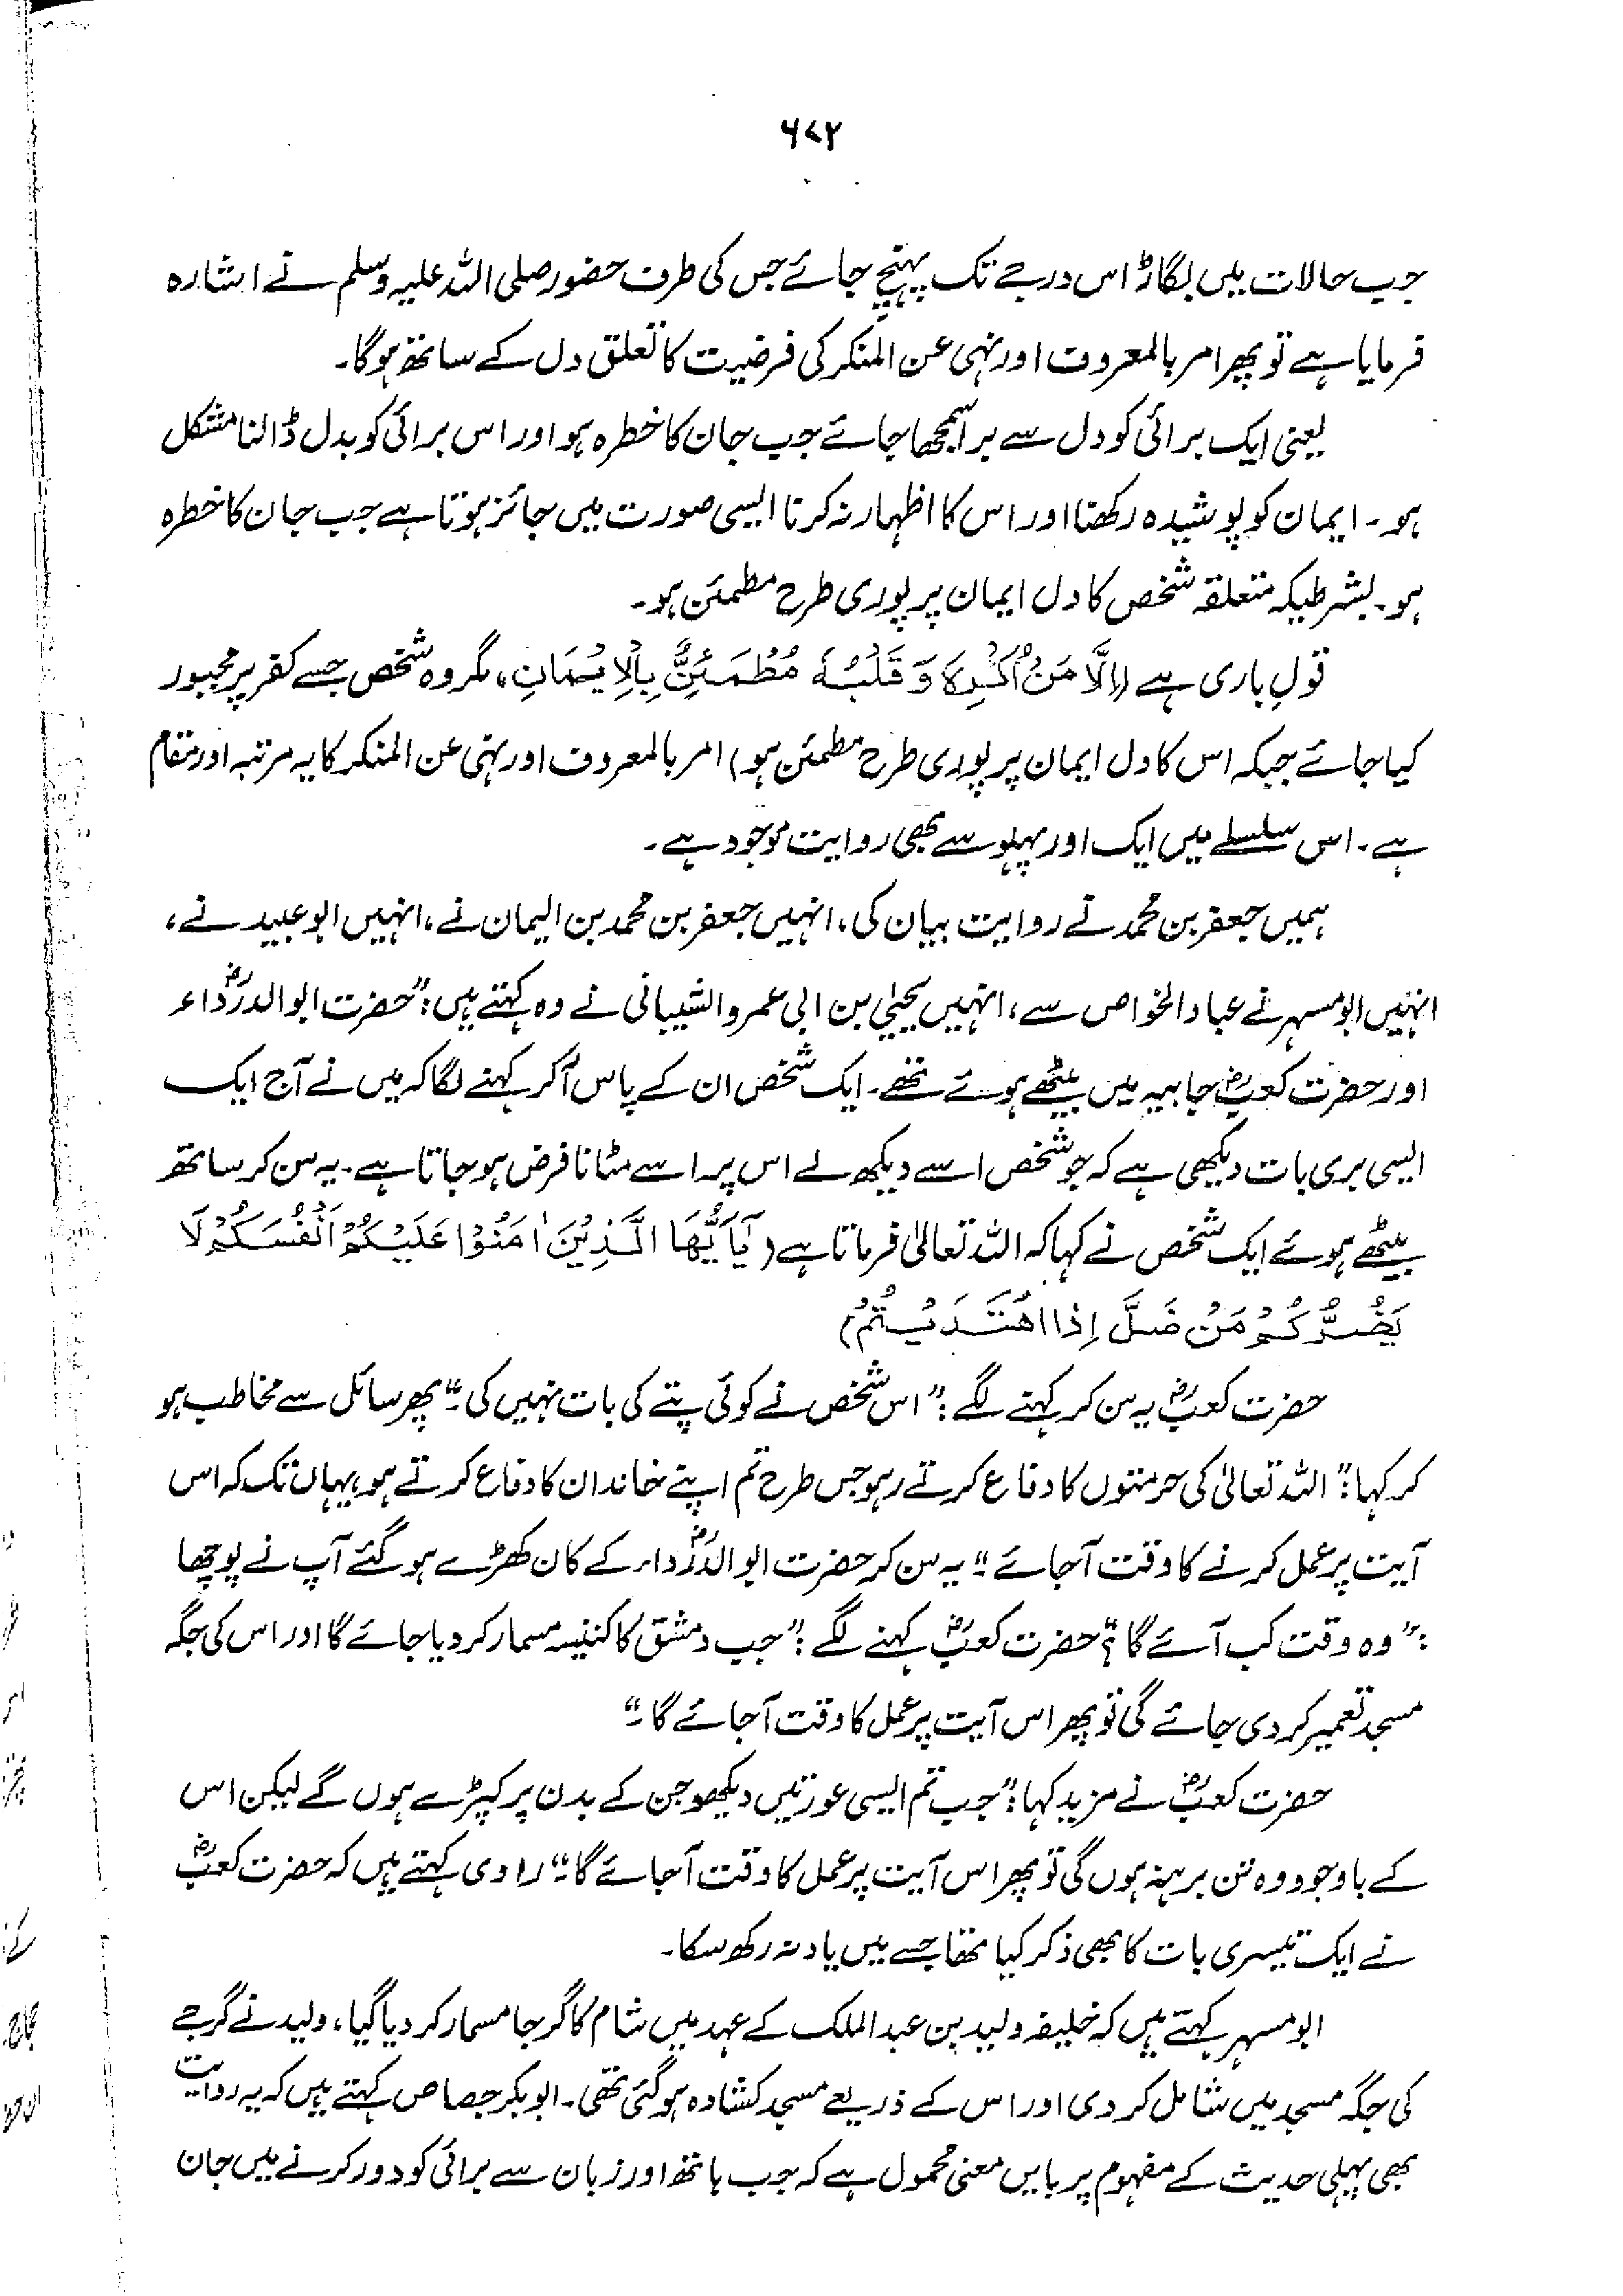 ۶۷۲
جب حالات میں بگاڑ اس درجے تک پہنچ جائے جس کی طرف حضور صلی اللہ علیہ وسلم نے اشارہ
فرمایا ہے تو پھر امر بالمعروف اور نہی عن المنکر کی فرضیت کا تعلق دل کے ساتھ ہوگا۔
یعنی ایک برائی کو دل سے برا سمجھا جائے جب جان کا خطرہ ہو اور اس برائی کو بدل ڈالنا مشکل
ہو۔ ایمان کو پوشیدہ رکھنا اور اس کا اظہار نہ کرنا ایسی صورت میں جائز ہوتا ہے جب جان کا خطرہ
ہو۔ بشرطیکہ متعلقہ شخص کا دل ایمان پر پوری طرح مطمئن ہو۔
قولِ باری ہے (اِلَّا مَنْ اُکْرِہَ وَقَلْبُہٗ مُطْمَئِنٌّ بِالْاِیْمَانِ، مگر وہ شخص جسے کفر پر مجبور
کیا جائے جبکہ اس کا دل ایمان پر پوری طرح مطمئن ہو) امر بالمعروف اور نہی عن المنکر کا یہ مرتبہ اور مقام
ہے۔ اس سلسلے میں ایک اور پہلو سے بھی روایت موجود ہے۔
ہمیں جعفر بن محمد نے روایت بیان کی، انہیں جعفر بن محمد بن الیمان نے، انہیں ابو عبید نے،
انہیں ابومسہر نے عباد الخواص سے، انہیں یحییٰ بن ابی عمرو الشیبانی نے وہ کہتے ہیں: "حضرت ابوالدرؓداء
اور حضرت کعبؓ جابیہ میں بیٹھے ہوئے تھے۔ ایک شخص ان کے پاس آ کر کہنے لگا کہ میں نے آج ایک
ایسی بری بات دیکھی ہے کہ جو شخص اسے دیکھ لے اس پر اسے مٹانا فرض ہو جاتا ہے۔ یہ سن کر ساتھ
بیٹھے ہوئے ایک شخص نے کہا کہ اللہ تعالیٰ فرماتا ہے (یٰٓاَیُّھَا الَّذِیْنَ اٰمَنُوْا عَلَیْکُمْ اَنْفُسَکُمْ لَا
یَضُرُّکُمْ مَنْ ضَلَّ اِذَا اھْتَدَیْتُمْ)
حضرت کعبؓ یہ سن کر کہنے لگے: "اس شخص نے کوئی پتے کی بات نہیں کی۔" پھر سائل سے مخاطب ہو
کر کہا: "اللہ تعالیٰ کی حرمتوں کا دفاع کرتے رہو جس طرح تم اپنے خاندان کا دفاع کرتے ہو یہاں تک کہ اس
آیت پر عمل کرنے کا وقت آجائے۔" یہ سن کر حضرت ابوالدرؓداء کے کان کھڑے ہو گئے آپ نے پوچھا
: "وہ وقت کب آئے گا؟" حضرت کعبؓ کہنے لگے: "جب دمشق کا کنیسہ مسمار کر دیا جائے گا اور اس کی جگہ
مسجد تعمیر کر دی جائے گی تو پھر اس آیت پر عمل کا وقت آجائے گا۔"
حضرت کعبؓ نے مزید کہا: "جب تم ایسی عورتیں دیکھو جن کے بدن پر کپڑے ہوں گے لیکن اس
کے باوجود وہ تن برہنہ ہوں گی تو پھر اس آیت پر عمل کا وقت آجائے گا۔" راوی کہتے ہیں کہ حضرت کعبؓ
نے ایک تیسری بات کا بھی ذکر کیا تھا جسے میں یاد نہ رکھ سکا۔
ابومسہر کہتے ہیں کہ خلیفہ ولید بن عبدالملک کے عہد میں شام کا گرجا مسمار کر دیا گیا، ولید نے گرجے
کی جگہ مسجد میں شامل کر دی اور اس کے ذریعے مسجد کشادہ ہو گئی تھی۔ ابوبکر جصاص کہتے ہیں کہ یہ روایت
بھی پہلی حدیث کے مفہوم پر بایں معنی محمول ہے کہ جب ہاتھ اور زبان سے برائی کو دور کرنے میں جان